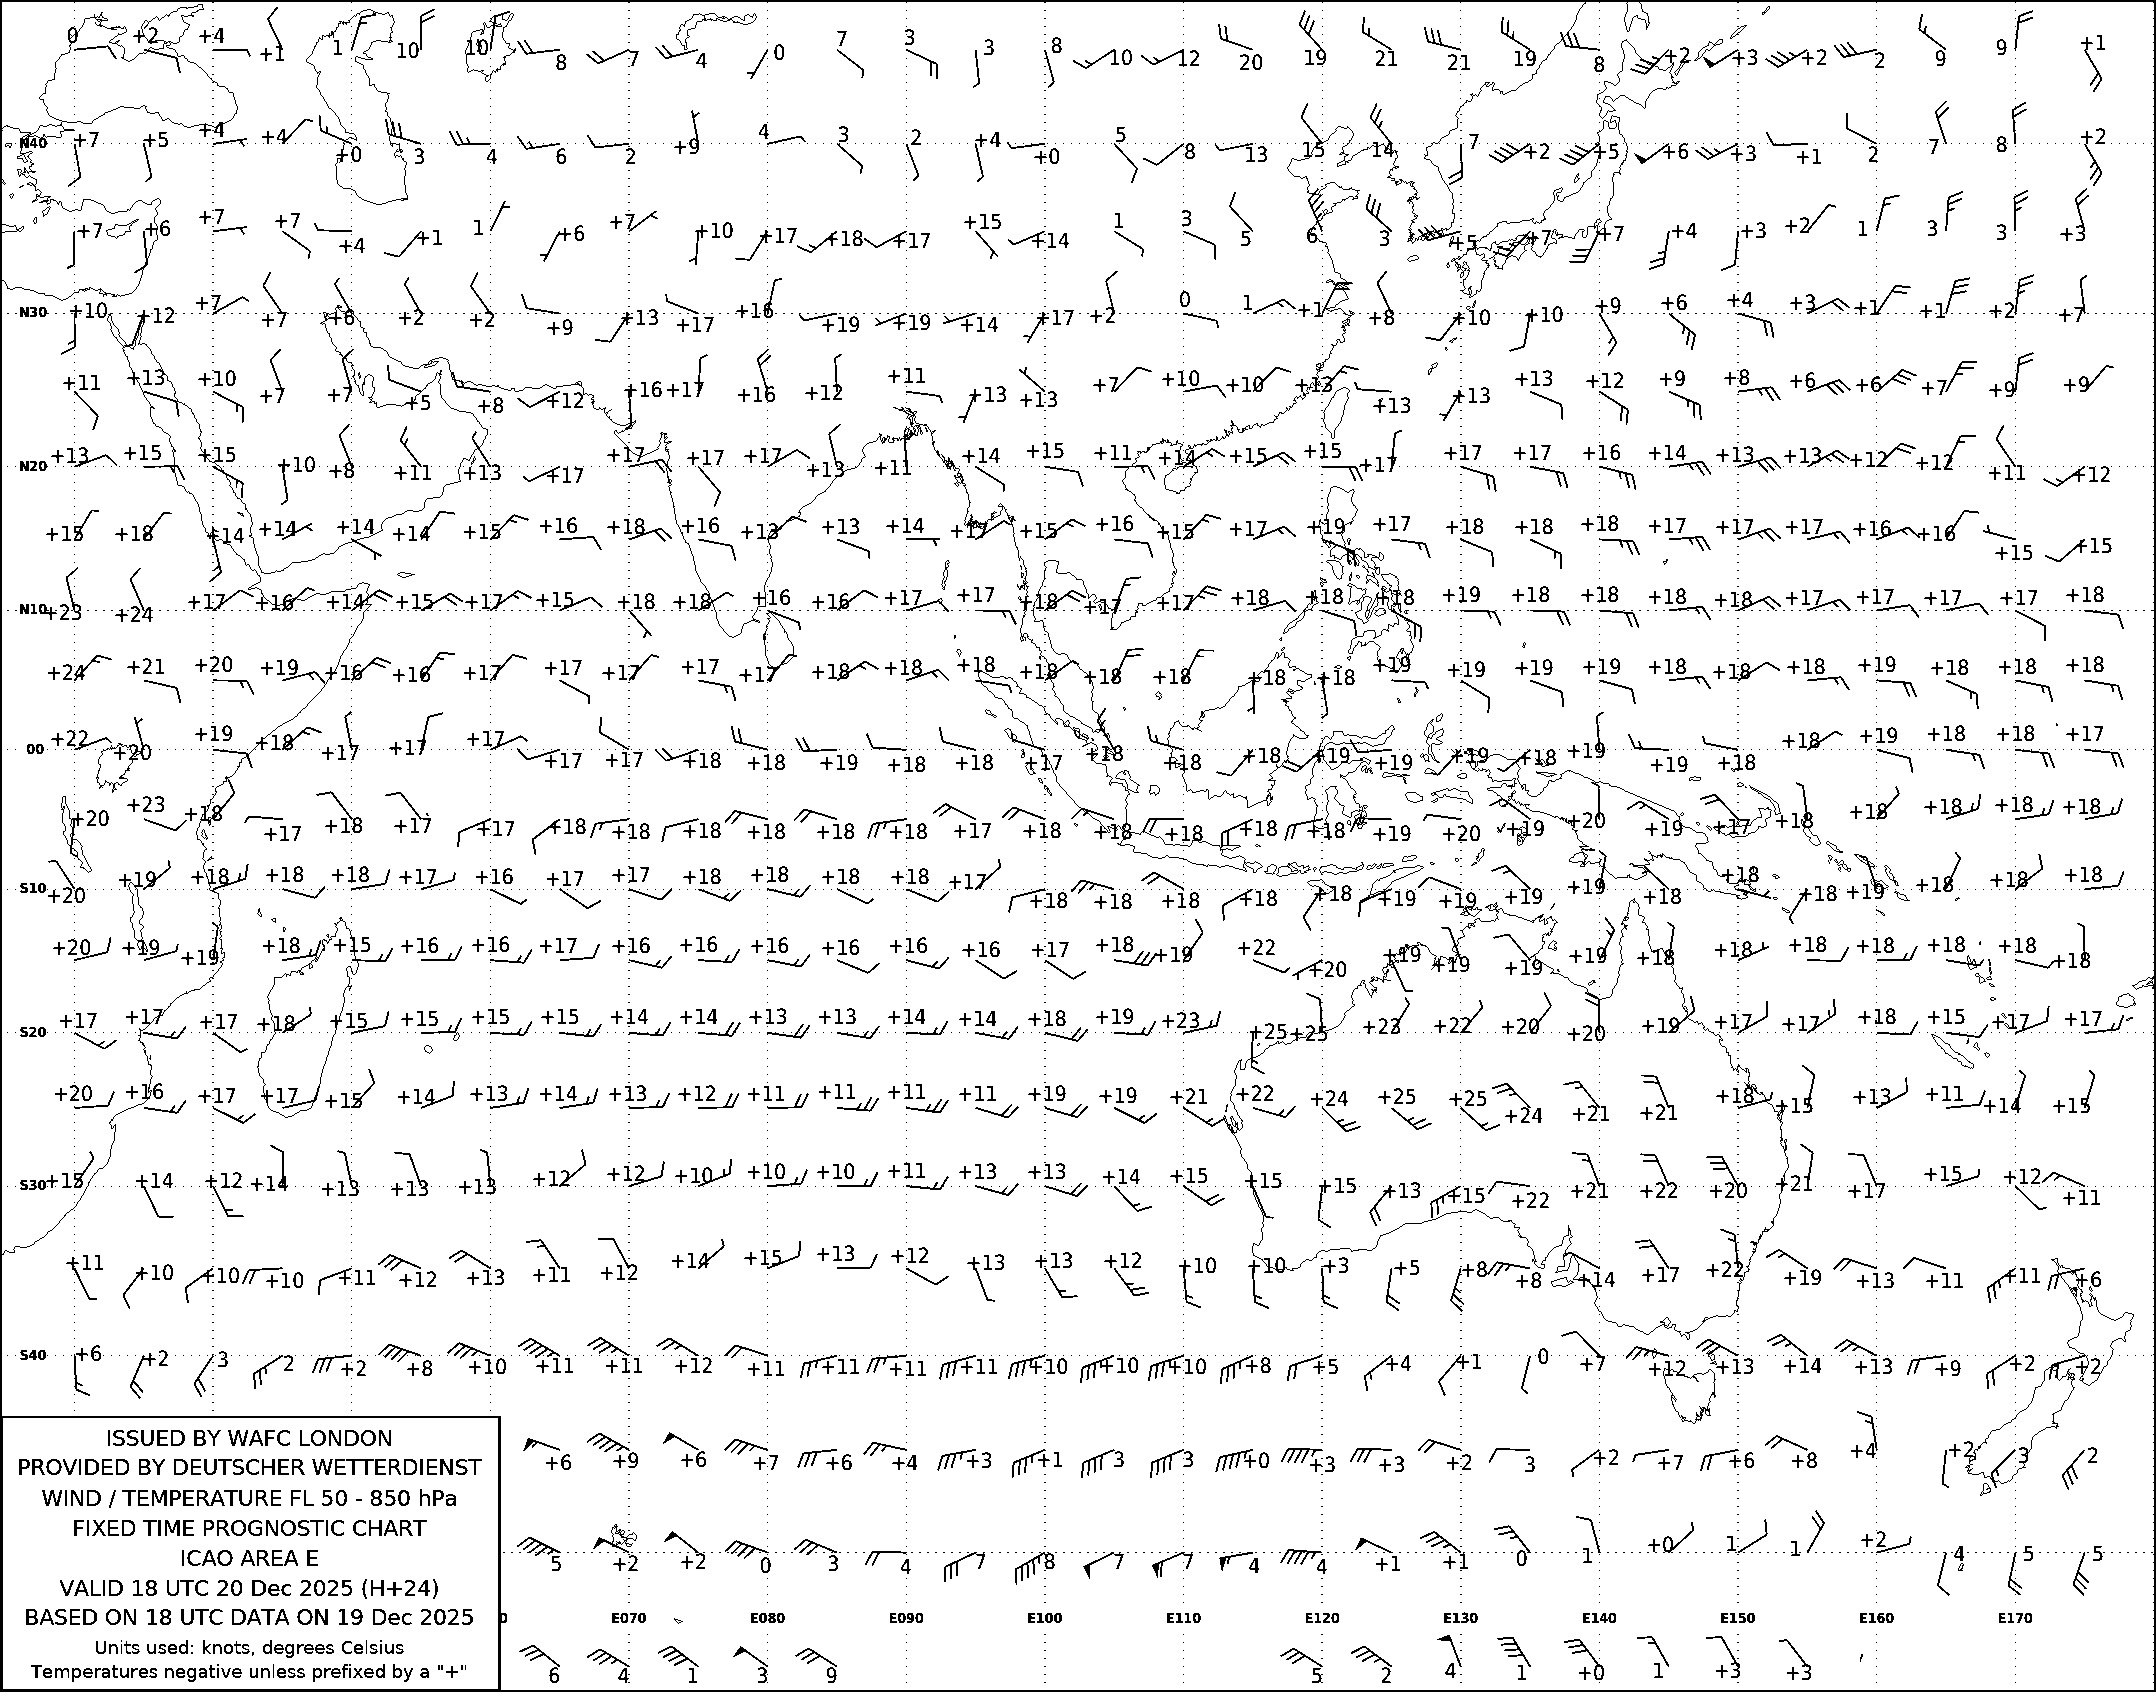 0 +2 +4 +1 1 10 10 8 7 4 0 7 3 3 8 10 12 20 19 21 21 19 8 +2 +3 +2 2 9 9 +1
N40 +7 +5 +4 +4 +0 3 4 6 2 +9 4 3 2 +4 +0 5 8 13 15 14 7 +2 +5 +6 +3 +1 2 7 8 +2
+7 +6 +7 +7 +4 +1 1 +6 +7 +10 +17 +18 +17 +15 +14 1 3 5 6 3 +5 +7 +7 +4 +3 +2 1 3 3 +3
N30 +10 +12 +7 +7 +6 +2 +2 +9 +13 +17 +16 +19 +19 +14 +17 +2 0 1 +1 +8 +10 +10 +9 +6 +4 +3 +1 +1 +2 +7
+11 +13 +10 +7 +7 +5 +8 +12 +16 +17 +16 +12 +11 +13 +13 +7 +10 +10 +13 +13 +13 +13 +12 +9 +8 +6 +6 +7 +9 +9
N20 +13 +15 +15 +10 +8 +11 +13 +17 +17 +17 +17 +13 +11 +14 +15 +11 +14 +15 +15 +17 +17 +17 +16 +14 +13 +13 +12 +12 +11 +12
+15 +18 +14 +14 +14 +14 +15 +16 +18 +16 +13 +13 +14 +15 +15 +16 +15 +17 +19 +17 +18 +18 +18 +17 +17 +17 +16 +16 +15 +15
N10 +23 +24 +17 +16 +14 +15 +17 +15 +18 +18 +16 +16 +17 +17 +18 +17 +17 +18 +18 +18 +19 +18 +18 +18 +18 +17 +17 +17 +17 +18
+24 +21 +20 +19 +16 +16 +17 +17 +17 +17 +17 +18 +18 +18 +18 +18 +18 +18 +18 +19 +19 +19 +19 +18 +18 +18 +19 +18 +18 +18
00 +22 +20 +19 +18 +17 +17 +17 +17 +17 +18 +18 +19 +18 +18 +17 +18 +18 +18 +19 +19 +19 +18 +19 +19 +18 +18 +19 +18 +18 +17
+20 +23 +18 +17 +18 +17 +17 +18 +18 +18 +18 +18 +18 +17 +18 +18 +18 +18 +18 +19 +20 +19 +20 +19 +17 +18 +18 +18 +18 +18
S10 +20 +19 +18 +18 +18 +17 +16 +17 +17 +18 +18 +18 +18 +17 +18 +18 +18 +18 +18 +19 +19 +19 +19 +18 +18 +18 +19 +18 +18 +18
+20 +19 +19 +18 +15 +16 +16 +17 +16 +16 +16 +16 +16 +16 +17 +18 +19 +22 +20 +19 +19 +19 +19 +18 +18 +18 +18 +18 +18 +18
S20 +17 +17 +17 +18 +15 +15 +15 +15 +14 +14 +13 +13 +14 +14 +18 +19 +23 +25 +25 +23 +22 +20 +20 +19 +17 +17 +18 +15 +17 +17
+20 +16 +17 +17 +15 +14 +13 +14 +13 +12 +11 +11 +11 +11 +19 +19 +21 +22 +24 +25 +25 +24 +21 +21 +18 +15 +13 +11 +14 +15
S30 +15 +14 +12 +14 +13 +13 +13 +12 +12 +10 +10 +10 +11 +13 +13 +14 +15 +15 +15 +13 +15 +22 +21 +22 +20 +21 +17 +15 +12 +11
+11 +10 +10 +10 +11 +12 +13 +11 +12 +14 +15 +13 +12 +13 +13 +12 +10 +10 +3 +5 +8 +8 +14 +17 +22 +19 +13 +11 +11 +6
S40 +6 +2 3 2 +2 +8 +10 +11 +11 +12 +11 +11 +11 +11 +10 +10 +10 +8 +5 +4 +1 0 +7 +12 +13 +14 +13 +9 +2 +2
+6 +9 +6 +7 +6 +4 +3 +1 3 3 +0 +3 +3 +2 3 +2 +7 +6 +8 +4 +2 3 2
5 +2 +2 0 3 4 7 8 7 7 4 4 +1 +1 0 1 +0 1 1 +2 4 5 5
0 E070 E080 E090 E100 E110 E120 E130 E140 E150 E160 E170
6 4 1 3 9 5 2 4 1 +0 1 +3 +3
ISSUED BY WAFC LONDON
PROVIDED BY DEUTSCHER WETTERDIENST
WIND / TEMPERATURE FL 50 - 850 hPa
FIXED TIME PROGNOSTIC CHART
ICAO AREA E
VALID 18 UTC 20 Dec 2025 (H+24)
BASED ON 18 UTC DATA ON 19 Dec 2025
Units used: knots, degrees Celsius
Temperatures negative unless prefixed by a "+"